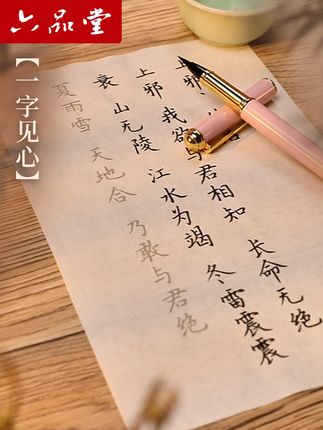 六品堂
【一字见心】
上
上邪 我欲与君相知 长命无绝
衰 山无陵 江水为竭 冬雷震震
夏雨雪 天地合 乃敢与君绝